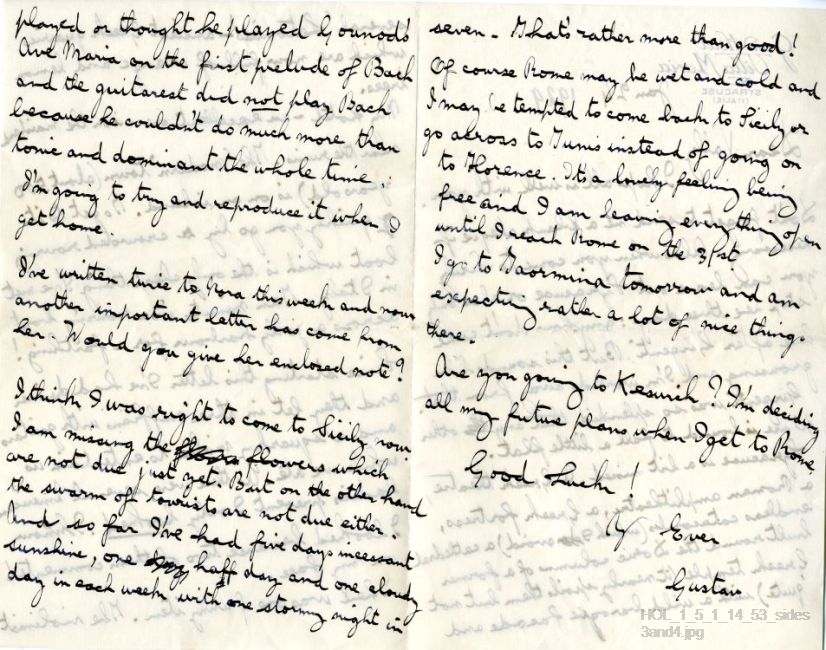 played or thought he played Gounod's
Ave Maria on the first prelude of Bach
and the guitarest did not play Bach
because he couldn't do much more than
tonic and dominant the whole time.
I'm going to try and reproduce it when I
get home.
I've written twice to Nora this week and now
another important letter has come from
her. Would you give her enclosed note?
I think I was right to come to Sicily now
I am missing the flowers which
are not due just yet. But on the other hand
the swarm of tourists are not due either.
And so far I've had five days incessant
sunshine, one half day and one cloudy
day in each week with one stormy night in
seven - That's rather more than good!
Of course Rome may be wet and cold and
I may be tempted to come back to Sicily or
go across to Tunis instead of going on
to Florence. It's a lovely feeling being
free and I am leaving everything open
until I reach Rome on the 31st.
I go to Taormina tomorrow and am
expecting rather a lot of nice things
there.
Are you going to Keswick? I'm deciding
all my future plans when I get to Rome.
Good Luck!
Yr Ever
Gustav
HOL_1_5_1_14_53_sides
3and4.jpg